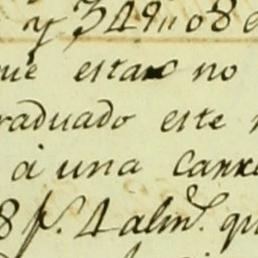 y 349
que estar no
raduado este
á una carre
8 p.s 4 alm.s qu